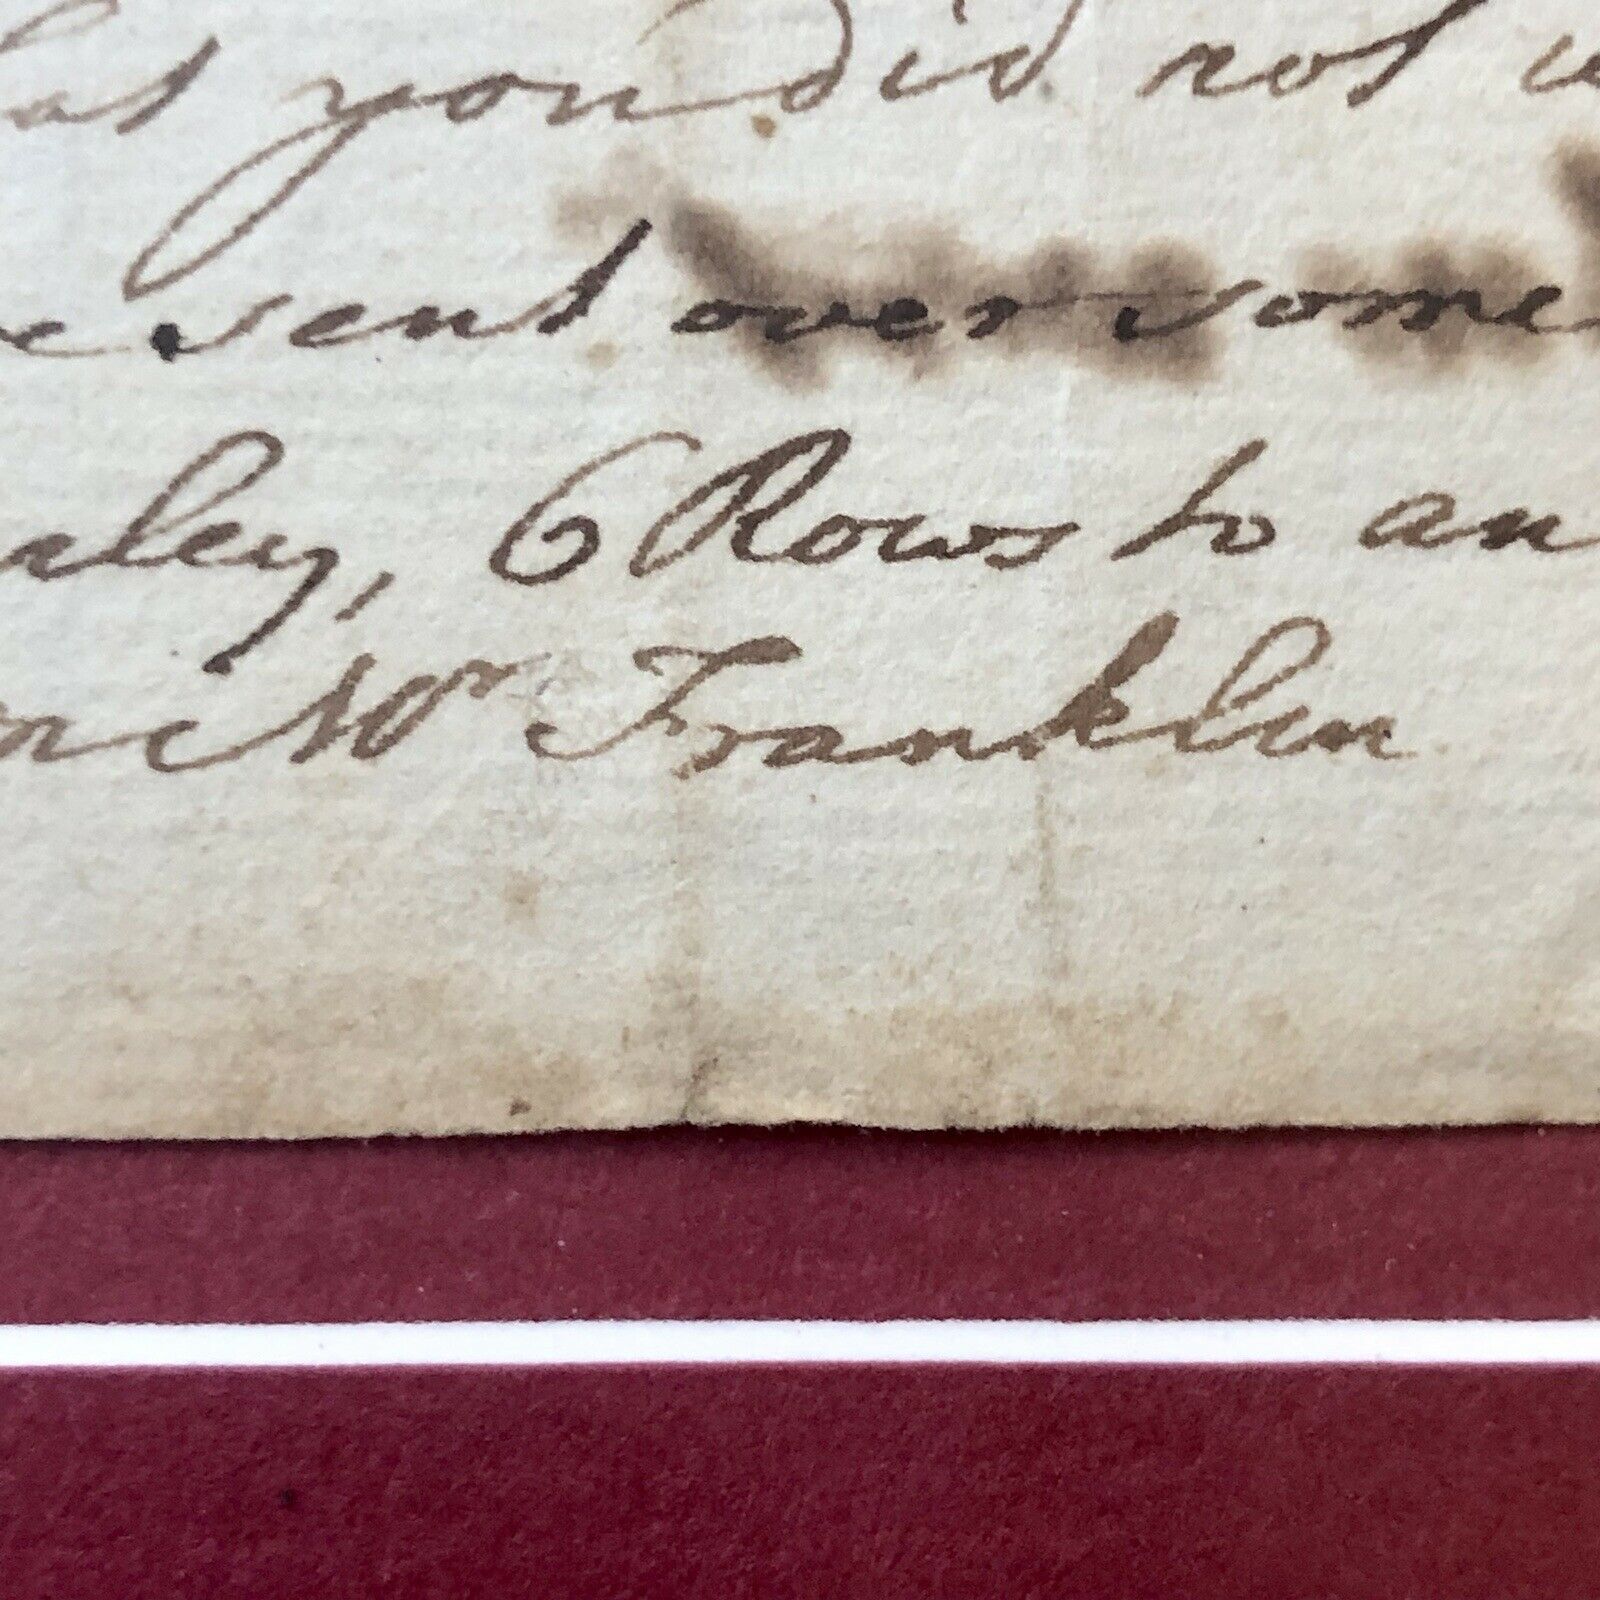 hat you did not
sent over some
arley, 6 Rows to an
Wm Franklin